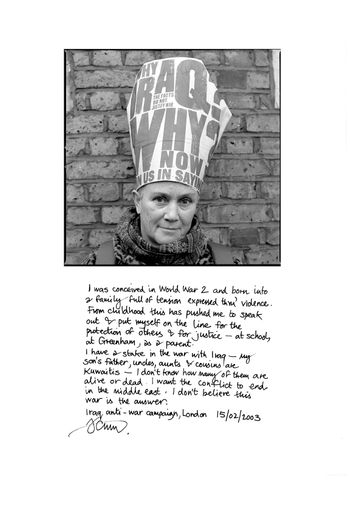 HY
IRAQ?
THE FACTS
DO NOT
WHY?
NOW
US IN SAYIN
I was conceived in World War 2 and born into
a family full of tension expressed thru' violence.
From childhood this has pushed me to speak
out & put myself on the line for the
protection of others & for justice — at school,
at Greenham, as a parent.
I have a stake in the war with Iraq — my
son's father, uncles, aunts & cousins are
Kuwaitis — I don't know how many of them are
alive or dead. I want the conflict to end
in the middle east. I don't believe this
war is the answer.
Iraq anti-war campaign, London 15/02/2003